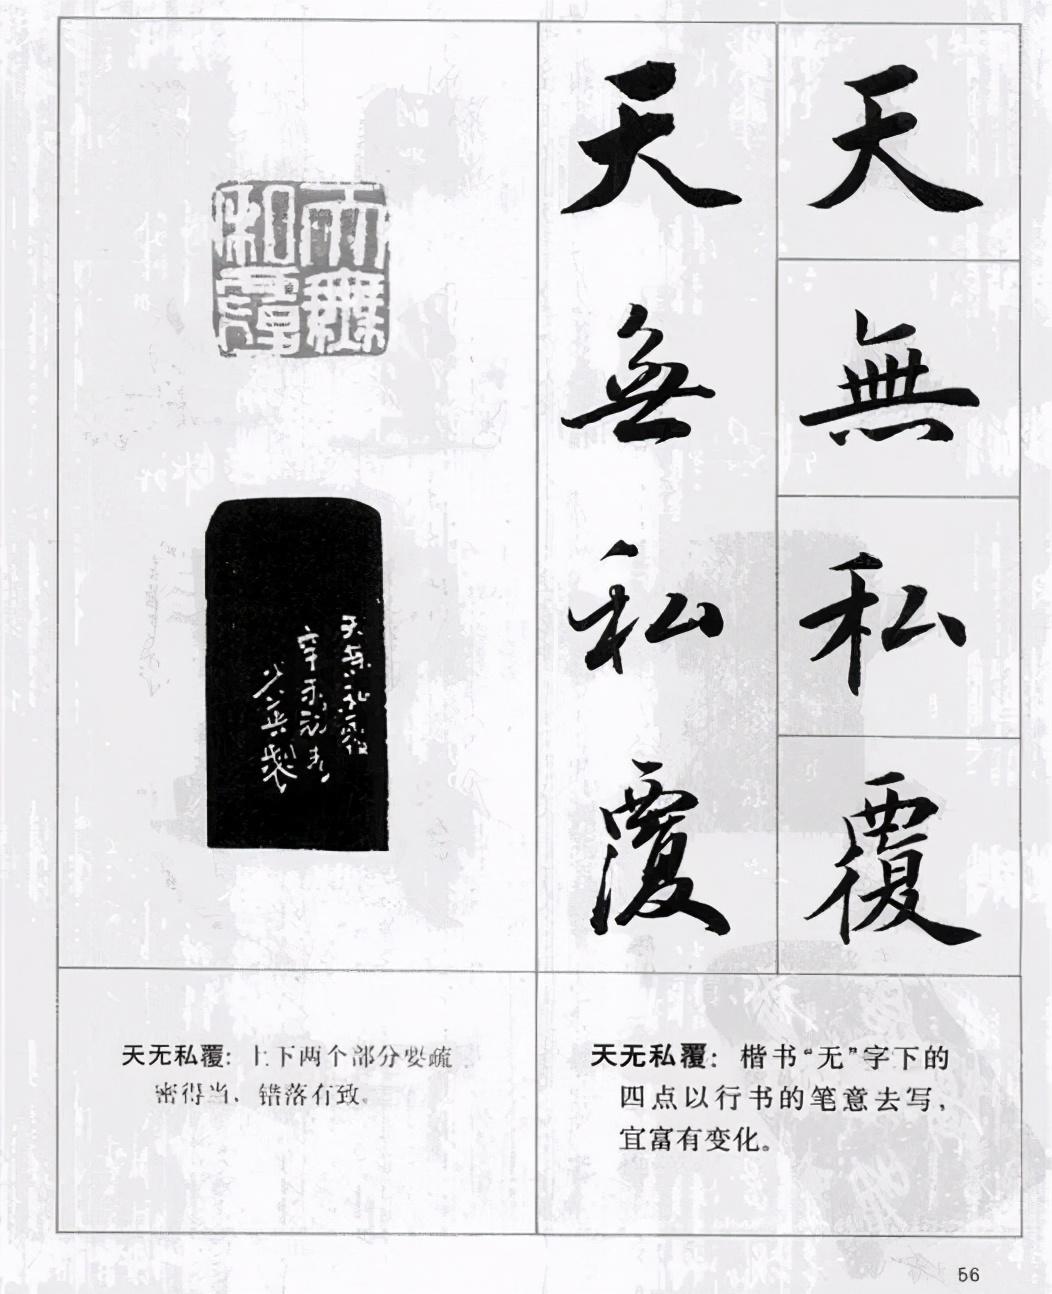 天無私覆
天無私覆
天無私覆
天無私覆
辛未
製
天无私覆：楷书“无”字下的
四点以行书的笔意去写，
宜富有变化。
天无私覆：上下两个部分要疏
密得当，错落有致。
56